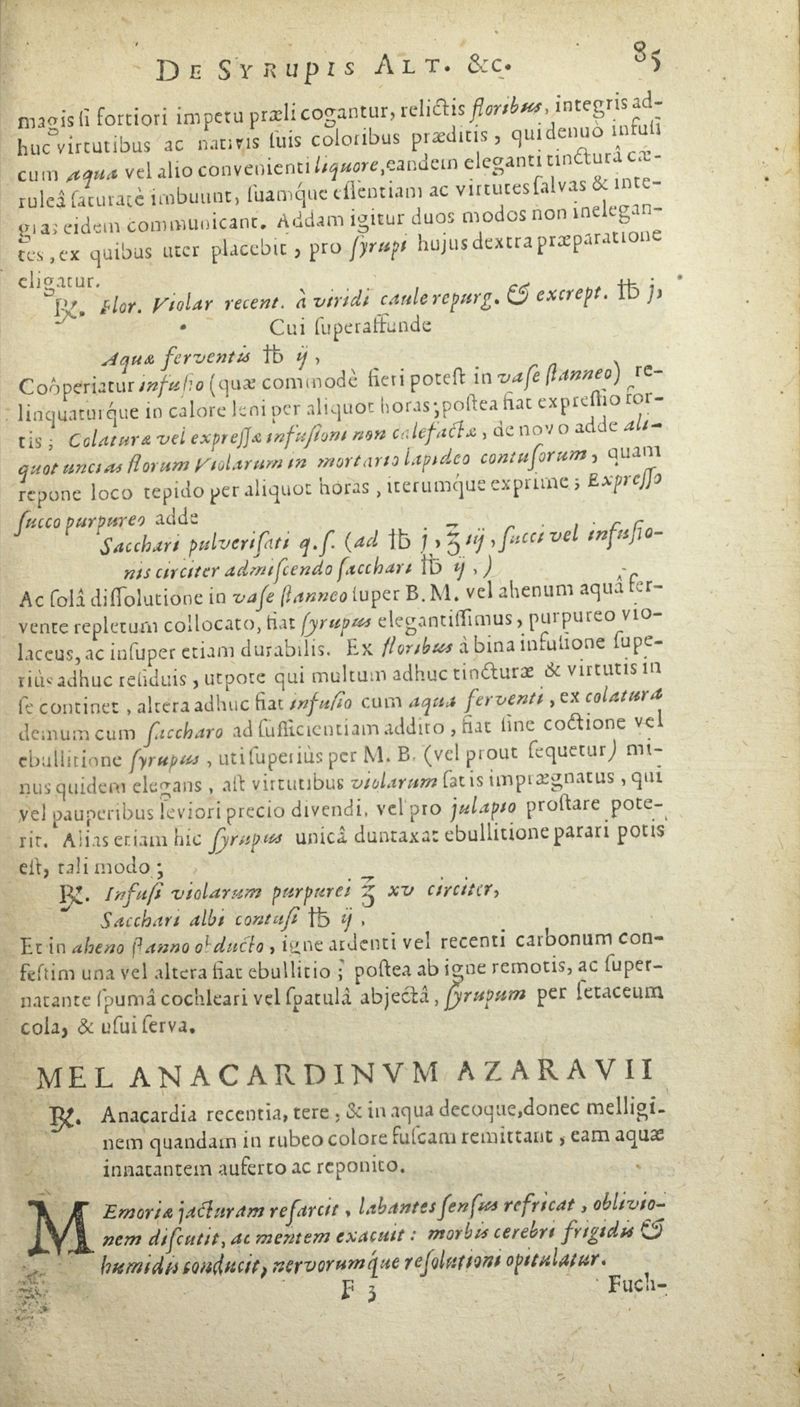 De Syrupis Alt. &c. 85
magis ſi fortiori impetu præli cogantur, relictis floribus, integris ad-
huc virtutibus ac nativis ſuis coloribus præditis, qui denuo infuſi
cum aqua vel alio convenienti liquore, eandem eleganti tinctura cæ-
rulea ſaturatè imbuunt, ſuamque eſſentiam ac virtutes ſalvas & inte-
gras eidem communicant. Addam igitur duos modos non inelegan-
tes, ex quibus uter placebit, pro ſyrupi hujus dextra præparatione
eligatur.
℞. Flor. Violar recent. à viridi caule repurg. & excrept. ℔ j,
Cui ſuperaffunde
Aquæ ferventis ℔ ij,
Coôperiatur infuſio (quæ commodè fieri poteſt in vaſe ſtanneo) re-
linquaturque in calore leni per aliquot horas; poſtea fiat expreſſio for-
tis; Colaturæ vel expreſſæ infuſioni non calefactæ, de novo adde ali-
quot uncias florum Violarum in mortario lapideo contuſorum, quam
repone loco tepido per aliquot horas, iterumque exprime; Expreſſo
ſucco purpureo adde
Sacchari pulveriſati q.ſ. (ad ℔ j, ℥ iij, ſucci vel infuſio-
nis circiter admiſcendo ſacchari ℔ ij,)
Ac ſolâ diſſolutione in vaſe ſtanneo ſuper B. M. vel ahenum aqua fer-
vente repletum collocato, fiat ſyrupus elegantiſſimus, purpureo vio-
laceus, ac inſuper etiam durabilis. Ex floribus à bina infuſione ſupe-
riùs adhuc reſiduis, utpote qui multum adhuc tincturæ & virtutis in
ſe continet, altera adhuc fiat infuſio cum aqua ferventi, ex colatura
demum cum ſaccharo ad ſufficientiam addito, fiat ſine coctione vel
ebullitione ſyrupus, uti ſuperiùs per M. B. (vel prout ſequetur) mi-
nus quidem elegans, aſt virtutibus violarum ſatis imprægnatus, qui
vel pauperibus leviori precio divendi, vel pro julapio proſtare pote-
rit. Alias etiam hic ſyrupus unicâ duntaxat ebullitione parari potis
eſt, tali modo;
℞. Infuſi violarum purpurei ℥ xv circiter,
Sacchari albi contuſi ℔ ij,
Et in aheno ſtanno obducto, igne ardenti vel recenti carbonum con-
feſtim una vel altera fiat ebullitio; poſtea ab igne remotis, ac ſuper-
natante ſpumâ cochleari vel ſpatulâ abjectâ, ſyrupum per ſetaceum
cola, & uſui ſerva.
MEL ANACARDINVM AZARAVII
℞. Anacardia recentia, tere, & in aqua decoque, donec melligi-
nem quandam in rubeo colore fuſcam remittant, eam aquæ
innatantem auferto ac reponito.
MEmoriæ jacturam reſarcit, labantes ſenſus refricat, oblivio-
nem diſcutit, ac mentem exacuit: morbis cerebri frigidis &
humidis conducit, nervorumque reſolutioni opitulatur.
F 3 Fuch-